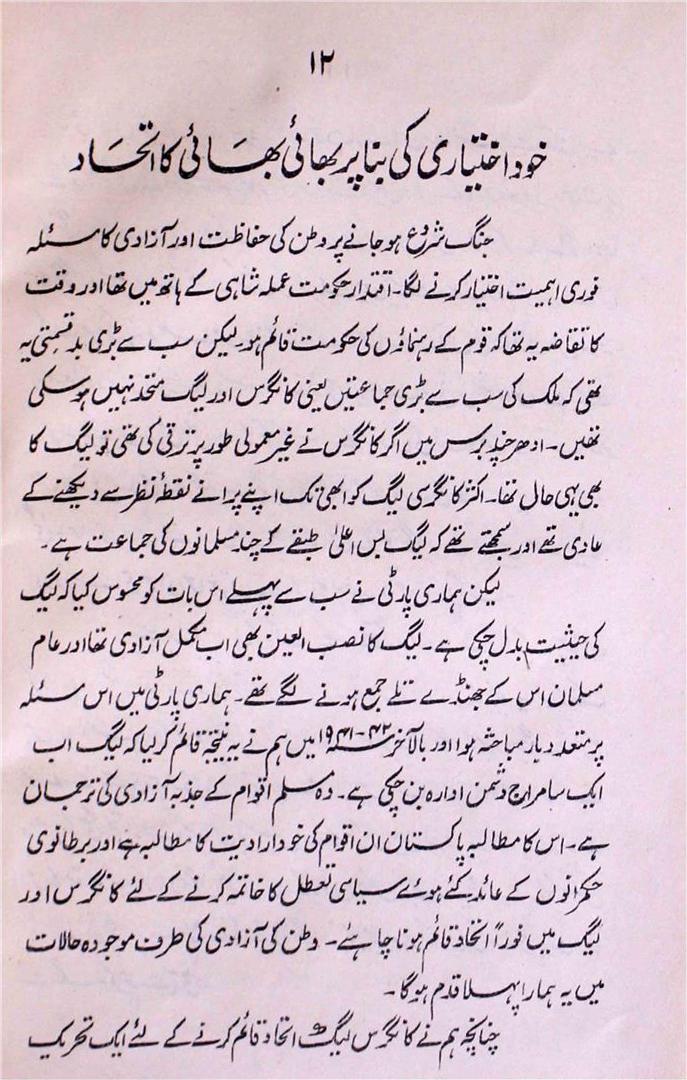 ۱۲
خود اختیاری کی بنا پر بھائی بھائی کا اتحاد
جنگ شروع ہو جانے پر وطن کی حفاظت اور آزادی کا مسئلہ
فوری اہمیت اختیار کرنے لگا۔ اقتدار حکومت عملہ شاہی کے ہاتھ میں تھا اور وقت
کا تقاضہ یہ تھا کہ قوم کے رہنماؤں کی حکومت قائم ہو۔ لیکن سب سے بڑی بدقسمتی یہ
تھی کہ ملک کی سب سے بڑی جماعتیں یعنی کانگرس اور لیگ متحد نہیں ہو سکی
تھیں۔ ادھر چند برس میں اگر کانگرس نے غیر معمولی طور پر ترقی کی تھی تو لیگ کا
بھی یہی حال تھا۔ اکثر کانگرسی لیگ کو ابھی تک اپنے پرانے نقطۂ نظر سے دیکھنے کے
عادی تھے اور سمجھتے تھے کہ لیگ بس اعلیٰ طبقے کے چند مسلمانوں کی جماعت ہے۔
لیکن ہماری پارٹی نے سب سے پہلے اس بات کو محسوس کیا کہ لیگ
کی حیثیت بدل چکی ہے۔ لیگ کا نصب العین بھی اب مکمل آزادی تھا اور عام
مسلمان اس کے جھنڈے تلے جمع ہونے لگے تھے۔ ہماری پارٹی میں اس مسئلہ
پر متعدد بار مباحثہ ہوا اور بالآخر ۴۲-۱۹۴۱ء میں ہم نے یہ نتیجہ قائم کر لیا کہ لیگ اب
ایک سامراج دشمن ادارہ بن چکی ہے۔ وہ مسلم اقوام کے جذبہ آزادی کی ترجمان
ہے۔ اس کا مطالبہ پاکستان ان اقوام کی خود ارادیت کا مطالبہ ہے اور برطانوی
حکمرانوں کے عائد کئے ہوئے سیاسی تعطل کا خاتمہ کرنے کے لئے کانگرس اور
لیگ میں فوراً اتحاد قائم ہونا چاہئے۔ وطن کی آزادی کی طرف موجودہ حالات
میں یہ ہمارا پہلا قدم ہوگا۔
چنانچہ ہم نے کانگرس لیگ اتحاد قائم کرنے کے لئے ایک تحریک